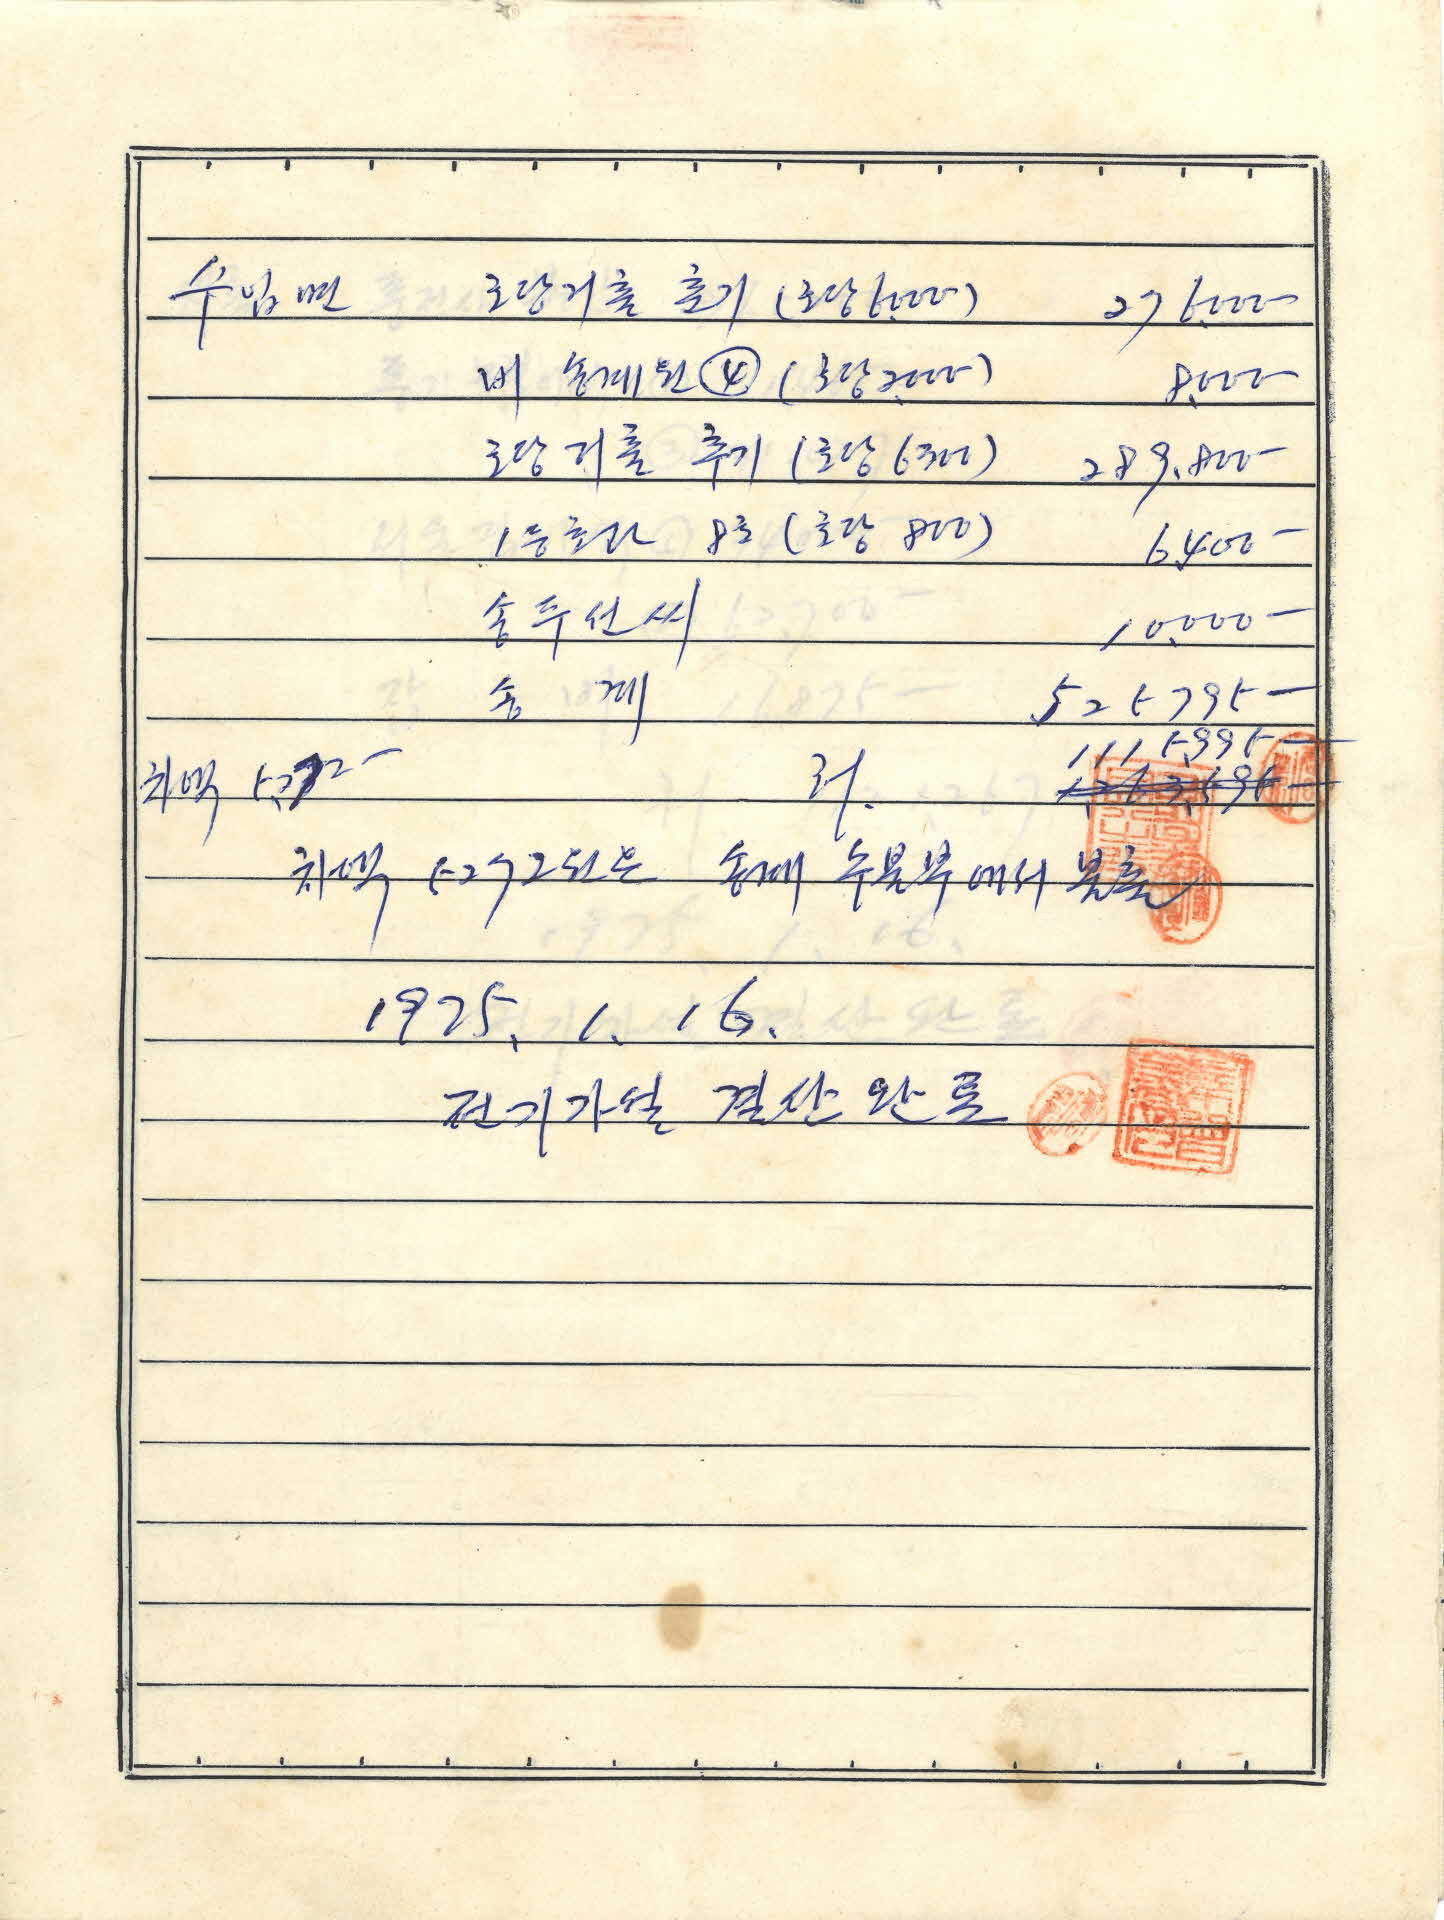 수입면 호당거출 춘기 (호당6,000) 276,000-
비 송계원 ④ (호당2,000) 8,000-
호당거출 추기 (호당6300) 289,800-
1등호라 8호 (호당 800) 6,400-
송두선씨 10,000-
송계 525795-
1115,995-
차액 5,272- 계.
차액 5272원은 송계 수본부에서 불출
1975. 1. 16.
전기가설 결산완료